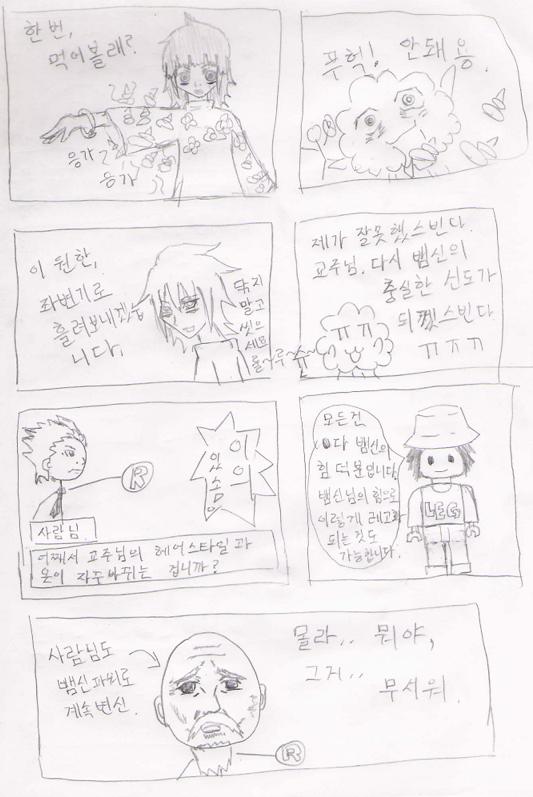 한번,
먹어볼래?
응가
응가
푸헉! 안돼용.
이 원한,
좌변기로
흘려보내겠습
니다.
닦지
말고
씻으
세요
룰~루~
제가 잘못했스빈다.
교주님. 다시 뱀신의
충실한 신도가
되겠스빈다
ㅠㅈㅠ
ㅠㅠ
R
이의
있소
사람님.
어째서 교주님의 헤어스타일과
옷이 자주 바뀌는 겁니까?
모든건
다 뱀신의
힘 덕분입니다.
뱀신님의 힘으로
이렇게 레고화
되는것도
가능합니다.
LEG
사람님도
뱀신파워로
계속변신.
몰라.. 뭐야,
그거..
무서워.
R